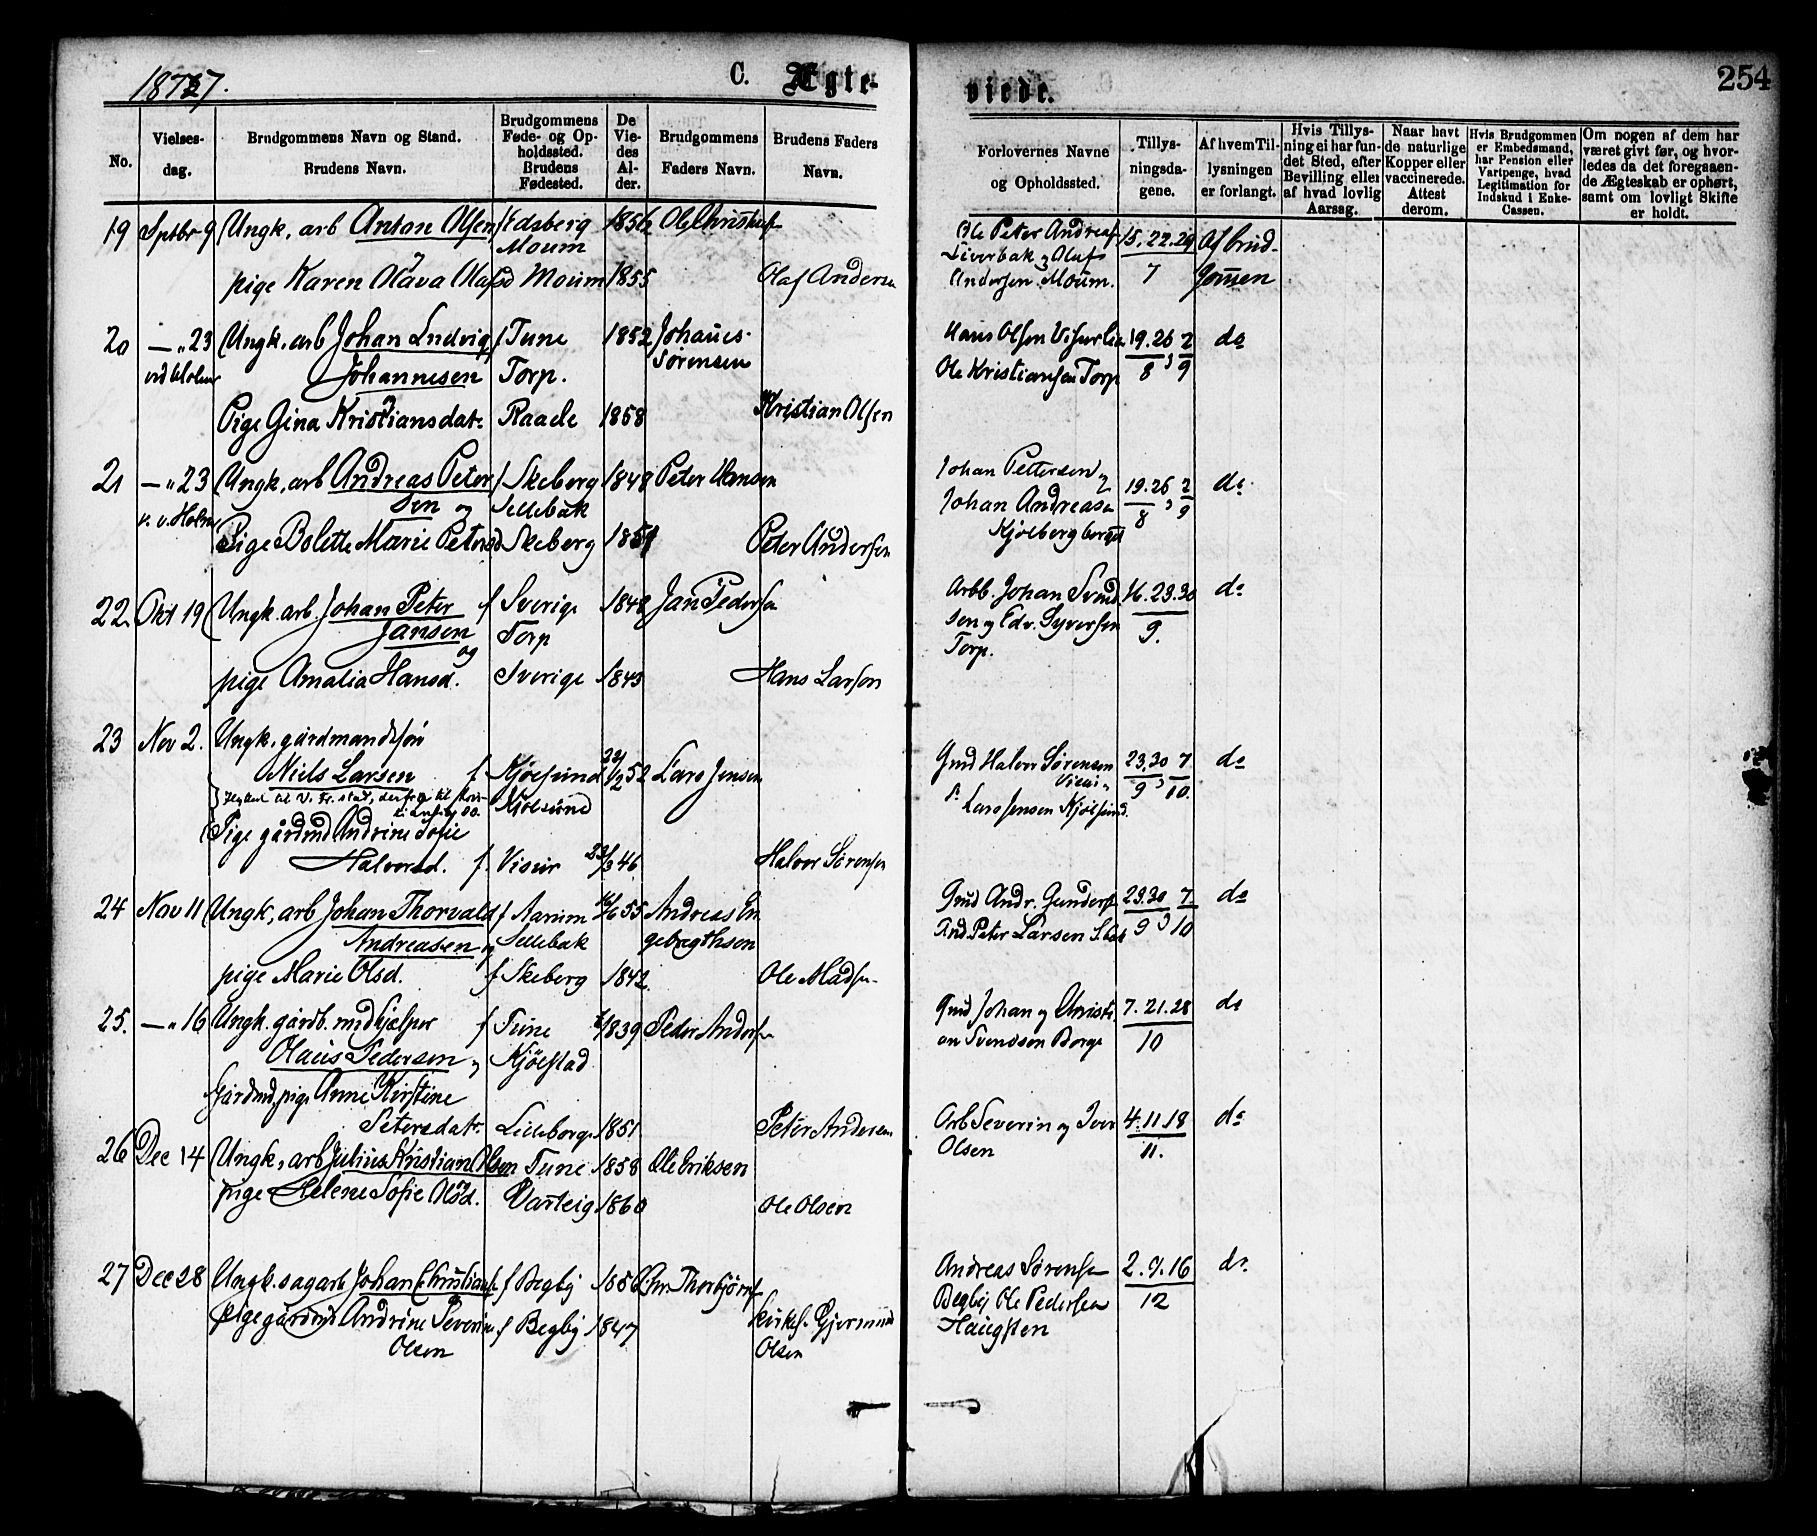 1877.
C. Ægte-
viede.
254
No.
Vielses-
dag.
Brudgommens Navn og Stand.
Brudens Navn.
Brudgommens
Føde- og Op-
holdssted.
Brudens
Fødested.
De
Vie-
des
Al-
der.
Brudgommens
Faders Navn.
Brudens Faders
Navn.
Forlovernes Navne
og Opholdssted.
Tillys-
ningsda-
gene.
Af hvem Til-
lysningen
er forlangt.
Hvis Tillys-
ning ei har fun-
det Sted, efter
Bevilling eller
af hvad lovlig
Aarsag.
Naar havt
de naturlige
Kopper eller
vaccinerede.
Attest
derom.
Hvis Brudgommen
er Embedsmand,
har Pension eller
Vartpenge, hvad
Legitimation for
Indskud i Enke-
Cassen.
Om nogen af dem har
været givt før, og hvor-
ledes da det foregaaen-
de Ægteskab er ophørt,
samt om lovligt Skifte
er holdt.
19 Sptbr 9 Ungk. arb Anton Olsen f Edsberg 1856 Ole Christens Ole Peter Andreas 15. 22. 29 Af brud-
Moum og Olaf
pige Karen Olava Olafsd Moum 1855 Olaf Anders Andersen Moum. 7
20 — „ 23 Ungk. arb Johan Ludvig f Tune 1852 Johanes Hans Olsen 19. 26 2 do
Johannesen Torp. Sørensen Ole Kristiansen Torp 8 , 9
Pige Gina Kristiansdatr Raade 1858 Kristian Olsen
21 — „ 23 Ungk. arb Andreas Peter f Skeberg 1848 Peter Hansen Johan Pettersen og 19. 26 2 do
sen og Sellebak Johan Andreasen 8 , 9
Pige Bolette Marie Petersd Skeberg Peter Andersen Kjølberg
22. Okt 19 Ungk. arb. Johan Peter f Sverige 1848 Jan Pedersen Arbb. Johan Svend 16. 23. 30 do
Jansen og Torp sen og Edv. Syversen 9.
Torp.
pige Amalia Hansd. Sverige 1843 Hans Larsen
23 Nov 2. Ungk. gårdmandssøn
Niels Larsen f Kjølsund 52 Lars Jensen Grd Halvor Sørensen 23. 30 7 do
Kjølsund Visur 9 , 10.
Pige gårdmd Andrine Sofie Lars Jensen Kjølsund.
Halvorsd. f. Visur 23/3 46 Halvor Sørensen
24 Nov 11 Ungk. arb Johan Thorvald f Aarum 55 Andreas En Gmd Andr. Gunders 23. 30 7 do
Andreasen og Sellebak gebregthsen Peter Larsen 9 , 10
pige Marie Olsd. f Skeberg 1842. Ole Madsen
25. — „ 16 Ungk. gårdb. medhjælper f Tune 1839 Peder Anders Gmd Johan og Christi 7. 21. 28 do
Olaus Pedersen og Kjølstad an Svendsen Borge 10
Gårdmd. pige Anne Kirstine
Petersdatr. Lilleborge 1851 Peter Andersen Arb Severin og Iver 4. 11 18 do
26 Dec 14 Ungk. arb Julius Kristian Olsen Tune 1858 Ole Eriksen Olsen 11.
pige Helene Sofie Olsd. Varteig 1860 Ole Olsen
27 Dec 28 Ungk. sagarb Johan Christians f Begby Chr. Thorbjørns Andreas Sørensen 2. 9. 16 do.
pige gårdmd Andrine Severine f Begby 1847 Gjermund Begby Ole Pedersen 12
Olsen Olsen Haugsten